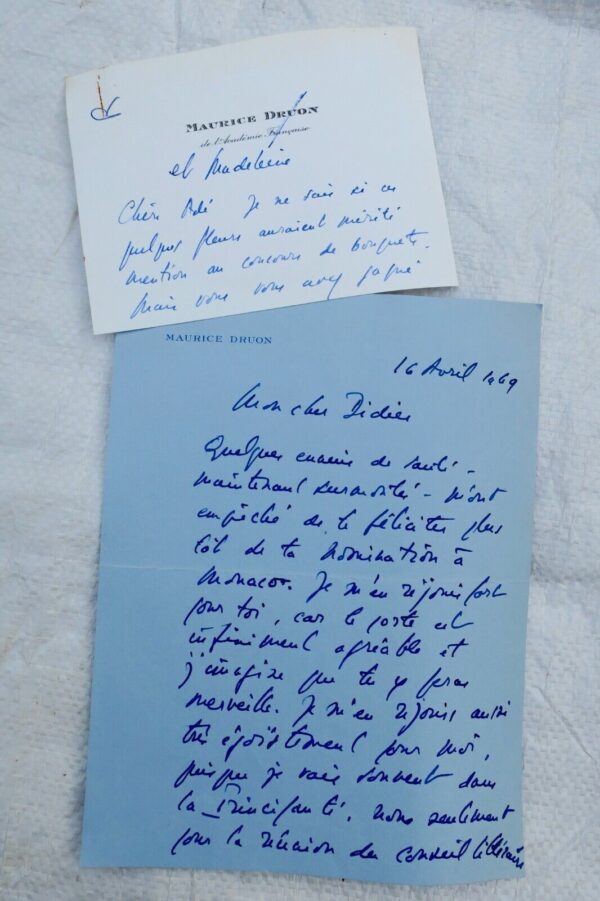 MAURICE DRUON
de l'Académie Française
et Madeleine
Chère Je ne sais si ces
quelques fleurs auraient mérité
mention au concours de bouquets.
Mais vous vous avez gagné
MAURICE DRUON
16 Avril 1969
Mon cher Didier
Quelques ennuis de santé -
maintenant surmontés - m'ont
empêché de te féliciter plus
tôt de ta nomination à
Monaco. Je m'en réjouis fort
pour toi, car le poste est
infiniment agréable et
j'imagine que tu y feras
merveille. Je m'en réjouis aussi
très égoïstement pour moi,
puisque je vais souvent dans
la Principauté, non seulement
pour la réunion du conseil littéraire